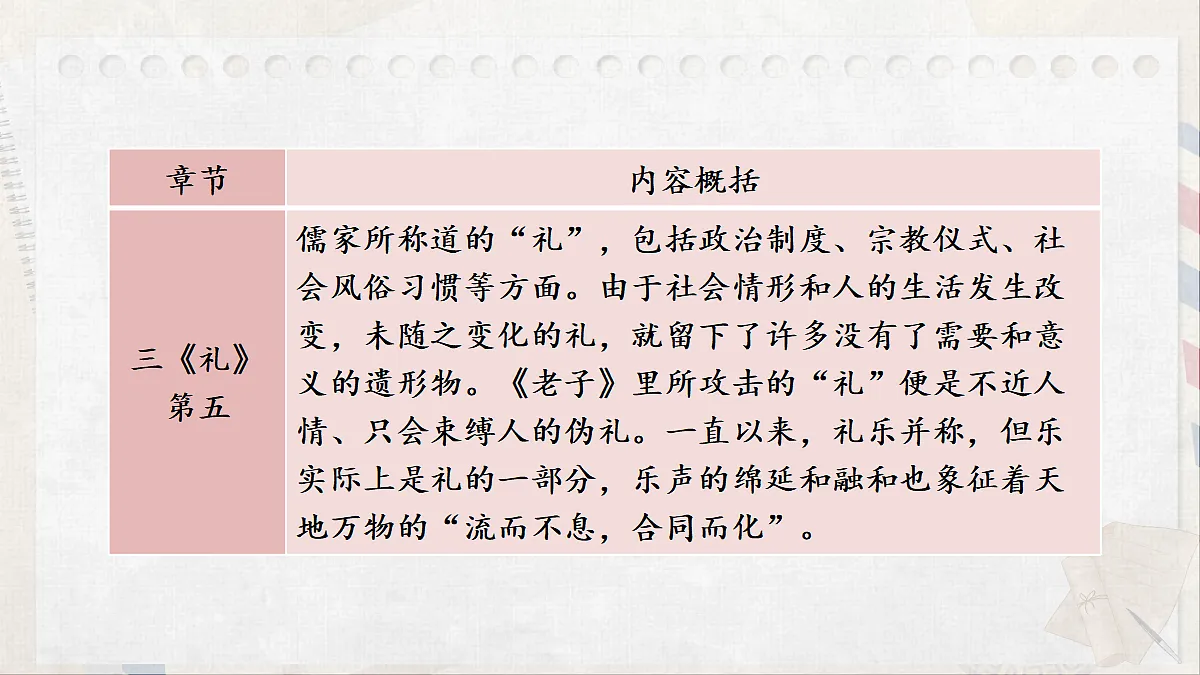 章节
内容概括
三《礼》
第五
儒家所称道的“礼”，包括政治制度、宗教仪式、社
会风俗习惯等方面。由于社会情形和人的生活发生改
变，未随之变化的礼，就留下了许多没有了需要和意
义的遗形物。《老子》里所攻击的“礼”便是不近人
情、只会束缚人的伪礼。一直以来，礼乐并称，但乐
实际上是礼的一部分，乐声的绵延和融和也象征着天
地万物的“流而不息，合同而化”。